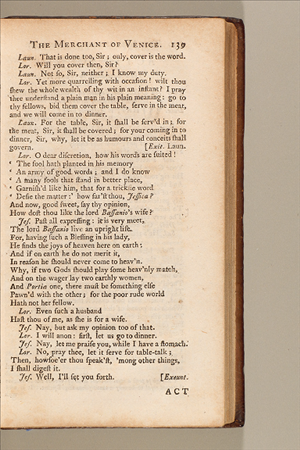 The Merchant of Venice. 139
Laun. That is done too, Sir; only, cover is the word.
Lor. Will you cover then, Sir?
Laun. Not so, Sir, neither; I know my duty.
Lor. Yet more quarrelling with occasion! wilt thou
shew the whole wealth of thy wit in an instant? I pray
thee understand a plain man in his plain meaning: go to
thy fellows, bid them cover the table, serve in the meat,
and we will come in to dinner.
Laun. For the table, Sir, it shall be serv'd in; for
the meat, Sir, it shall be covered; for your coming in to
dinner, Sir, why, let it be as humours and conceits shall
govern. [Exit. Laun.
Lor. O dear discretion, how his words are suited!
' The fool hath planted in his memory
' An army of good words; and I do know
' A many fools that stand in better place,
' Garnish'd like him, that for a tricksie word
' Defie the matter:' how far'st thou, Jessica?
And now, good sweet, say thy opinion,
How dost thou like the lord Bassanio's wife?
Jes. Past all expressing: it is very meet,
The lord Bassanio live an upright life.
For, having such a Blessing in his lady,
He finds the joys of heaven here on earth;
And if on earth he do not merit it,
In reason he should never come to heav'n.
Why, if two Gods should play some heav'nly match,
And on the wager lay two earthly women,
And Portia one, there must be something else
Pawn'd with the other; for the poor rude world
Hath not her fellow.
Lor. Even such a husband
Hast thou of me, as she is for a wife.
Jes. Nay, but ask my opinion too of that.
Lor. I will anon: first, let us go to dinner.
Jes. Nay, let me praise you, while I have a stomach.
Lor. No, pray thee, let it serve for table-talk;
Then, howsoe'er thou speak'st, 'mong other things,
I shall digest it.
Jes. Well, I'll set you forth. [Exeunt.
ACT